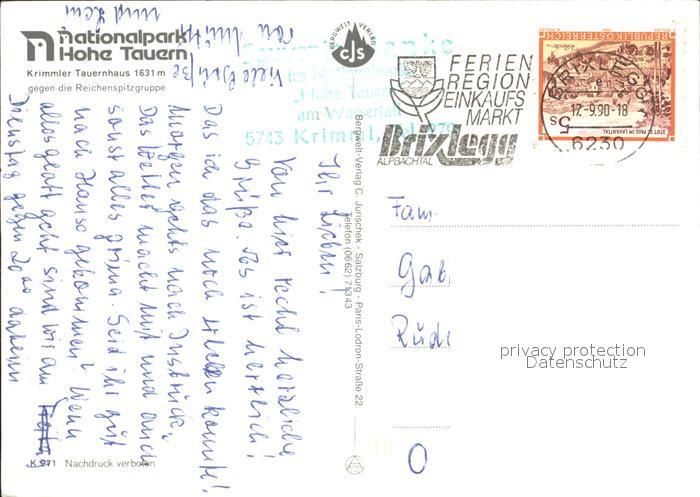 Nationalpark
Hohe Tauern
Krimmler Tauernhaus 1631 m
gegen die Reichenspitzgruppe
Ihr Lieben!
Von hier recht herzliche
Grüße. Es ist herrlich!
Das ich das noch erleben konnte!
Morgen gehts nach Insbruck.
Das Wetter macht mit und auch
sonst alles prima. Seid ihr gut
nach Hause gekommen? Wenn
alles glatt geht sind wir am
Dienstag gegen 20 00 daheim
Viele Grüße
von Mutti
und
K 271 Nachdruck verboten
BERGWELT VERLAG
CJS
Bergwelt-Verlag C. Jurischek - Salzburg - Paris-Lodron-Straße 22
Telefon (0662) 71343
im Nationalpark
"Hohe Tauern"
am Wasserfall
5743 Krimml,
FERIEN
REGION
EINKAUFS
MARKT
Brixlegg
ALPBACHTAL
REPUBLIK ÖSTERREICH
STIFT ST. PAUL IM LAVANTTAL
BRIXLEGG
17.-9.90-18
6230
Fam.
Gab
Rüdi
0
privacy protection
Datenschutz